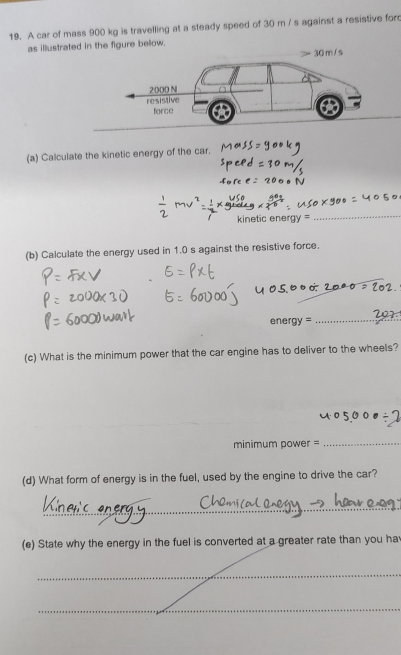 19. A car of mass 900 kg is travelling at a steady speed of 30 m / s against a resistive forc
as illustrated in the figure below.
30 m/s
2000 N
resistive
force
(a) Calculate the kinetic energy of the car.
Mass = 900kg
Speed = 30 m/s
force = 2000 N
1/2 mv² = 1/2 × = 450 × 900 = 4050
kinetic energy =
(b) Calculate the energy used in 1.0 s against the resistive force.
P = F×V
E = P×t
P = 2000×30
E = 60000j
405,000 ÷ 2000 = 202.
P = 60000 watt
energy = 202
(c) What is the minimum power that the car engine has to deliver to the wheels?
405,000 ÷ 2
minimum power =
(d) What form of energy is in the fuel, used by the engine to drive the car?
Kinetic energy
Chemical energy → hear energ
(e) State why the energy in the fuel is converted at a greater rate than you hav